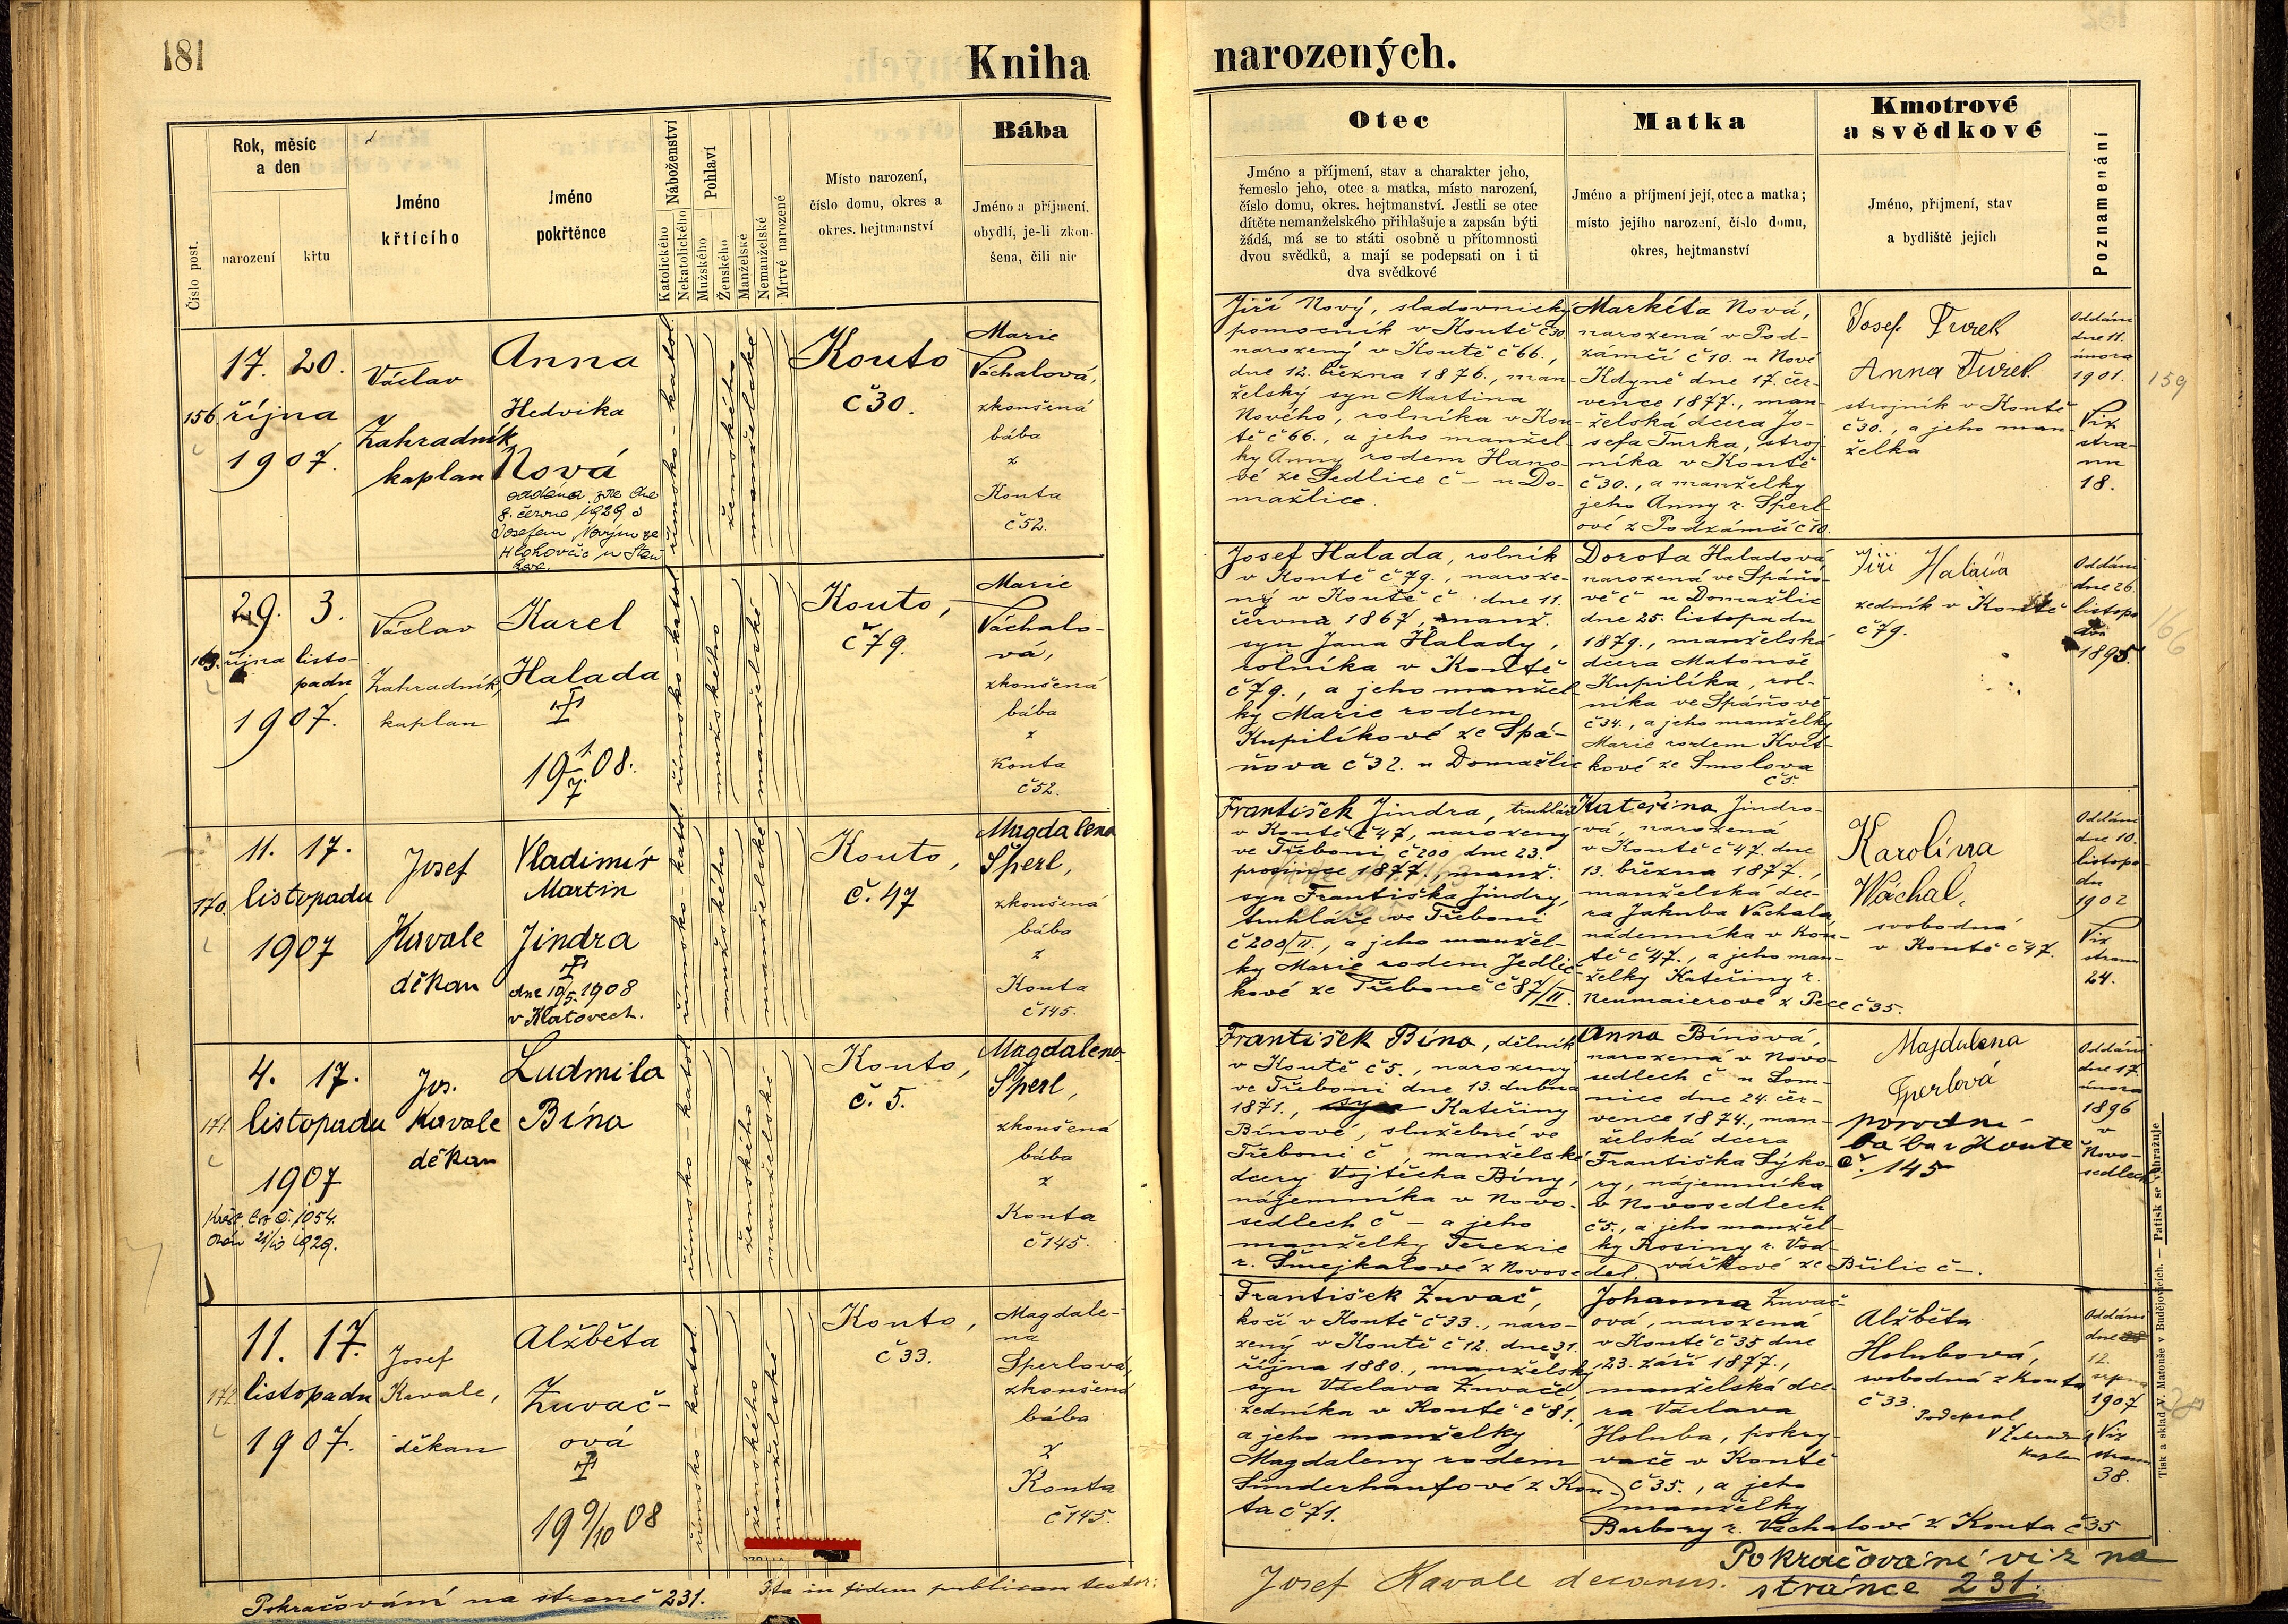 181
Kniha
narozených.
Číslo post.
Rok, měsíc
a den
narození
křtu
Jméno
křtícího
Jméno
pokřtěnce
Náboženství
Katolického
Nekatolického
Pohlaví
Mužského
Ženského
Manželské
Nemanželské
Mrtvé narozené
Místo narození,
číslo domu, okres a
okres. hejtmanství
Bába
Jméno a příjmení,
obydlí, je-li zkou-
šena, čili nic
Otec
Jméno a příjmení, stav a charakter jeho,
řemeslo jeho, otec a matka, místo narození,
číslo domu, okres. hejtmanství. Jestli se otec
dítěte nemanželského přihlašuje a zapsán býti
žádá, má se to státi osobně u přítomnosti
dvou svědků, a mají se podepsati on i ti
dva svědkové
Matka
Jméno a příjmení její, otec a matka;
místo jejího narození, číslo domu,
okres, hejtmanství
Kmotrové
a svědkové
Jméno, příjmení, stav
a bydliště jejich
Poznamenání
156.
17. 20.
října
1907.
Václav
Zahradník
kaplan
Anna
Hedvika
Nová
oddána zde dne
8. června 1929 s
Josefem Novým ze
Hlohovčic u Staň
kova.
římsko-katol.
ženského
manželské
Kouto
č 30.
Marie
Váchalová,
zkoušená
bába
z
Kouta
č 52.
Jiří Nový, sladovnický
pomocník v Koutě č 30
narozený v Koutě č 66.,
dne 12. března 1876., man-
želský syn Martina
Nového, rolníka v Kou-
tě č 66., a jeho manžel-
ky Anny rodem Hano-
vé ze Sedlice č – u Do-
mažlic.
Markéta Nová,
narozená v Pod-
zámčí č 10. u Nové
Kdyně dne 17. čer-
vence 1877., man-
želská dcera Jo-
sefa Turka, stroj-
níka v Koutě
č 30., a manželky
jeho Anny r. Šperl-
ové z Podzámčí č 10.
Josef Turek
Anna Turek
strojník v Koutě
č 30., a jeho man-
želka
Oddáni
dne 11.
února
1901.
Viz
stra-
nu
18.
159
163.
29. 3.
října listo-
padu
1907.
Václav
Zahradník,
kaplan
Karel
Halada
19 1/7 08.
římsko-katol.
mužského
manželské
Kouto,
č 79.
Marie
Váchalo-
vá,
zkoušená
bába
z
Kouta
č 52.
Josef Halada, rolník
v Koutě č 79., naroze-
ný v Koutě č dne 11.
června 1867, manž.
syn Jana Halady,
rolníka v Koutě
č 79., a jeho manžel-
ky Marie rodem
Kupilíkové ze Spá-
ňova č 32. u Domažlic
Dorota Haladová,
narozená ve Spáňo-
vě č u Domažlic
dne 25. listopadu
1879., manželská
dcera Matouše
Kupilíka, rol-
níka ve Spáňově
č 34., a jeho manželky
Marie rodem Květ-
kové ze Smolova
č 5.
Jiří Halada
zedník v Koutě
č 79.
Oddáni
dne 26.
listopa
du
1895.
166
170.
11. 17.
listopadu
1907
Josef
Kavale
děkan
Vladimír
Martin
Jindra
dne 10/5. 1908
v Klatovech.
římsko-katol.
mužského
manželské
Kouto,
č. 47
Magdalena
Šperl,
zkoušená
bába
z
Kouta
č 145.
František Jindra, truhlář
v Koutě č 47, narozený
ve Třeboni č 200 dne 23.
prosince 1877., manž.
syn Františka Jindry,
truhláře ve Třeboni
č 200/II., a jeho manžel-
ky Marie rodem Jedlič-
kové ze Třeboně č 87/II.
Kateřina Jindro-
vá, narozená
v Koutě č 47. dne
13. března 1877.,
manželská dce-
ra Jakuba Váchala,
nádenníka v Kou-
tě č 47., a jeho man-
želky Kateřiny r.
Neumaierové z Pece č 35.
Karolína
Wáchal,
svobodná
v Koutě č 47.
Oddáni
dne 10.
listopa-
du
1902
Viz
stranu
24.
171.
4. 17.
listopadu
1907
Křest. list č. 1054.
Jos.
Kavale
děkan
Ludmila
Bína
římsko-katol.
ženského
manželské
Kouto,
č. 5.
Magdalena
Šperl,
zkoušená
bába
z
Kouta
č 145.
František Bína, dělník
v Koutě č 5., narozený
ve Třeboni dne 13. dubna
1871., syn Kateřiny
Bínové, služebné ve
Třeboni č , manželské
dcery Vojtěcha Bíny,
nájemníka v Novo-
sedlech č – a jeho
manželky Terezie
r. Šmejkalové z Novosedel.
Anna Bínová,
narozená v Novo-
sedlech č u Lom-
nice dne 24. čer-
vence 1874., man-
želská dcera
Františka Sýko-
ry, nájemníka
v Novosedlech
č 5., a jeho manžel-
ky Rosiny r. Vod-
váškové ze Bůlic č –.
Majdalena
Šperlová
porodní
bába v Koutě
č. 145
Oddáni
dne 17.
února
1896
v
Novo-
sedlech
172.
11. 17.
listopadu
1907.
Josef
Kavale,
děkan
Alžběta
Zuvač-
ová
19 9/10 08
římsko-katol.
ženského
manželské
Kouto,
č 33.
Magdale-
na
Šperlová,
zkoušená
bába
z
Kouta
č 145.
František Zuvač,
kočí v Koutě č 33., naro-
zený v Koutě č 12. dne 31.
října 1880., manželský
syn Václava Zuvače,
zedníka v Koutě č 81.,
a jeho manželky
Magdaleny rodem
Sunderhaufové z Kou-
ta č 71.
Johanna Zuvač-
ová, narozená
v Koutě č 35 dne
23. září 1877.,
manželská dce-
ra Václava
Holuba, pokrý-
vače v Koutě
č 35., a jeho
manželky
Barbory r. Váchalové z Kouta č 35
Alžběta
Holubová,
svobodná z Kouta
č 33.
Podepsal
V Zahradník
kaplan
Oddáni
dne
12.
srpna
1907
Viz
stranu
38.
Pokračování na straně 231.
Ita in fidem publicam testor:
Josef Kavale decanus.
Pokračování viz na
stránce 231.
Tisk a sklad V. Matouše v Budějovicích. — Patisk se vyhražuje